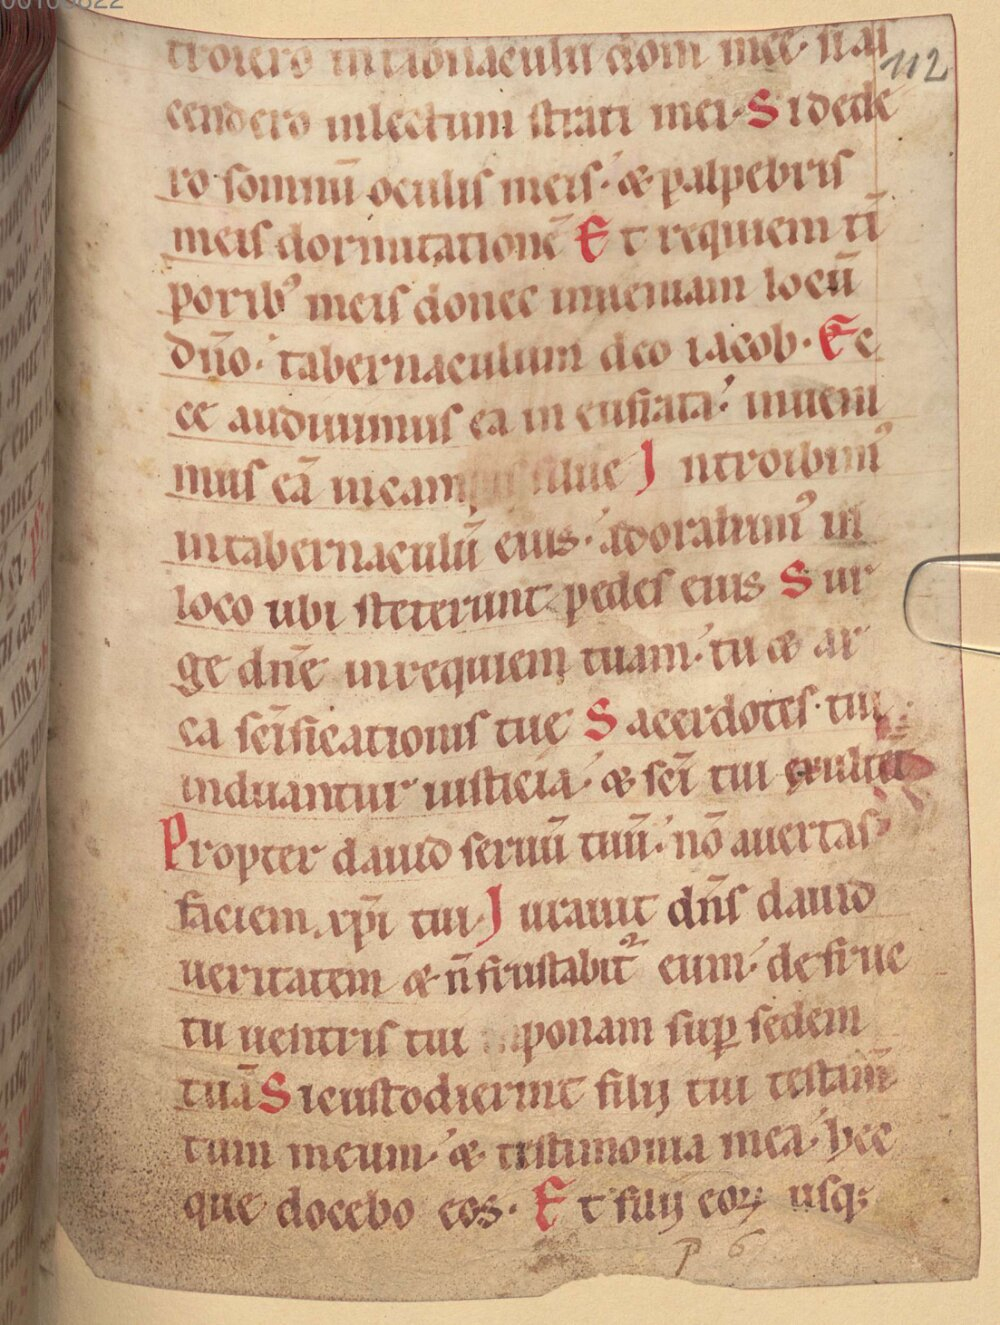 troiero in tab̄naculū dom̄ mee· si as
112
cendero inlectum strati mei· Si dede
ro somnū oculis meis· & palpebris
meis dormitationē Et requiem tī
porib' meis donec inueniam locū
dn̄o· tabernaculum deo iacob· Ec
ce audiuimus ea in eufrata· inueni
mus eā incampis silue Introibim'
intabernaculū eius· adorabim' in
loco ubi steterunt pedes eius Sur
ge dn̄e inrequiem tuam· tu & ar
ca sc̄ificationis tue Sacerdotes· tui
induantur iusticia· & sc̄i tui exultēt
Propter dauid seruū tuū· nō auertas
faciem xp̄i tui Iurauit dn̄s dauid
ueritatem & n̄ frustabit᷑ eum· de fruc
tu uentris tui ponam suꝑ sedem
tuā Si custodierint filij tui testam̄
tum meum· & testimonia mea· hec
que docebo eos· Et filij eoꝝ usq;
p 6